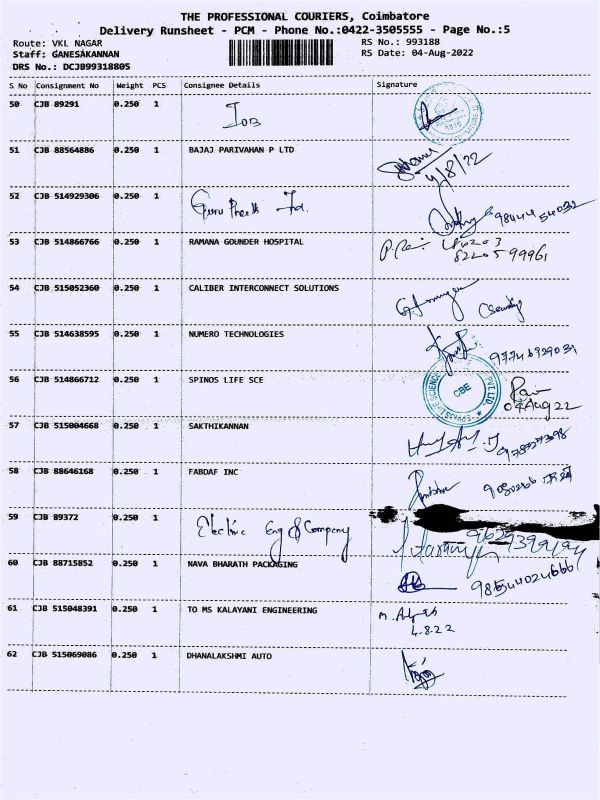 THE PROFESSIONAL COURIERS, Coimbatore
Delivery Runsheet - PCM - Phone No.:0422-3505555 - Page No.:5
Route: VKL NAGAR RS No.: 993188
Staff: GANESAKANNAN RS Date: 04-Aug-2022
DRS No.: DCJB99318805
S No Consignment No Weight PCS Consignee Details Signature
50 CJB 89291 0.250 1 IOB
51 CJB 88564886 0.250 1 BAJAJ PARIVAHAN P LTD
4/8/22
52 CJB 514929306 0.250 1 Ind.
53 CJB 514866766 0.250 1 RAMANA GOUNDER HOSPITAL
54 CJB 515052360 0.250 1 CALIBER INTERCONNECT SOLUTIONS
55 CJB 514638595 0.250 1 NUMERO TECHNOLOGIES
56 CJB 514866712 0.250 1 SPINOS LIFE SCE CBE
04 Aug 22
57 CJB 515004668 0.250 1 SAKTHIKANNAN
58 CJB 88646168 0.250 1 FABDAF INC
59 CJB 89372 0.250 1 Electric Eng & Company
60 CJB 88715852 0.250 1 NAVA BHARATH PACKAGING
61 CJB 515048391 0.250 1 TO MS KALAYANI ENGINEERING
4.8.22
62 CJB 515069086 0.250 1 DHANALAKSHMI AUTO